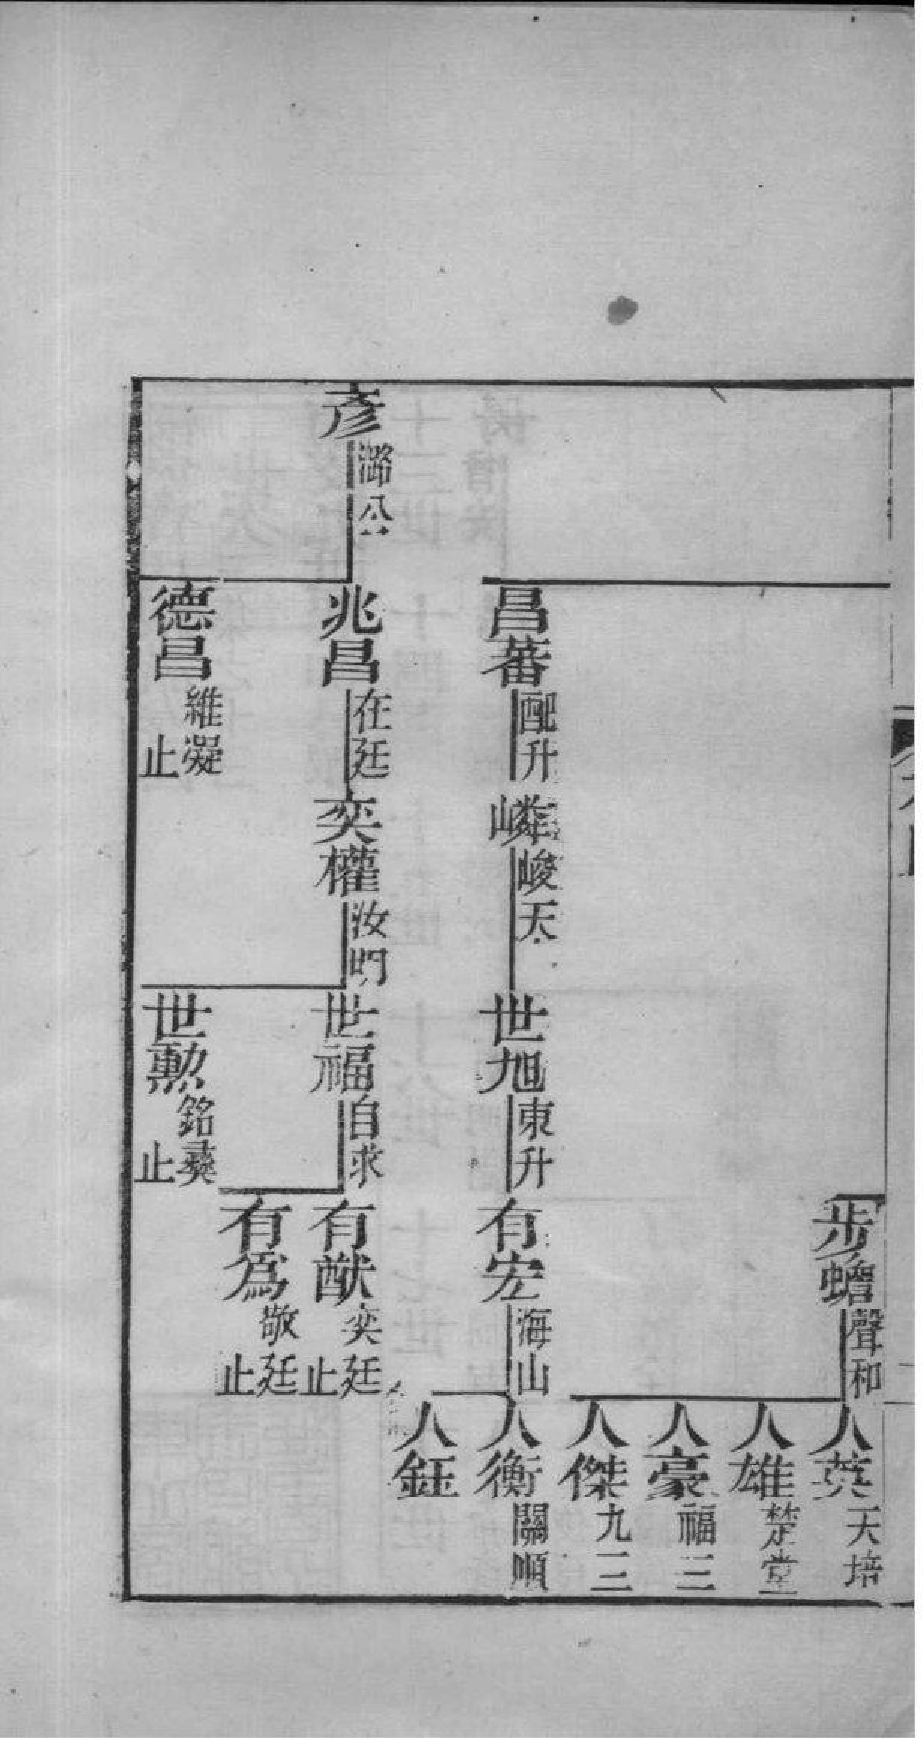 步蟾 聲和
人英 天培
人雄 楚堂
人豪 福三
人傑 九三
昌蕃 配升
嶙 峻天
世旭 東升
有宏 海山
人衡 關順
人鈺
彥 潞公
兆昌 在廷
奕權 汝明
世福 自求
有猷 奕廷 止
有為 敬廷 止
德昌 維凝 止
世勲 銘彝 止